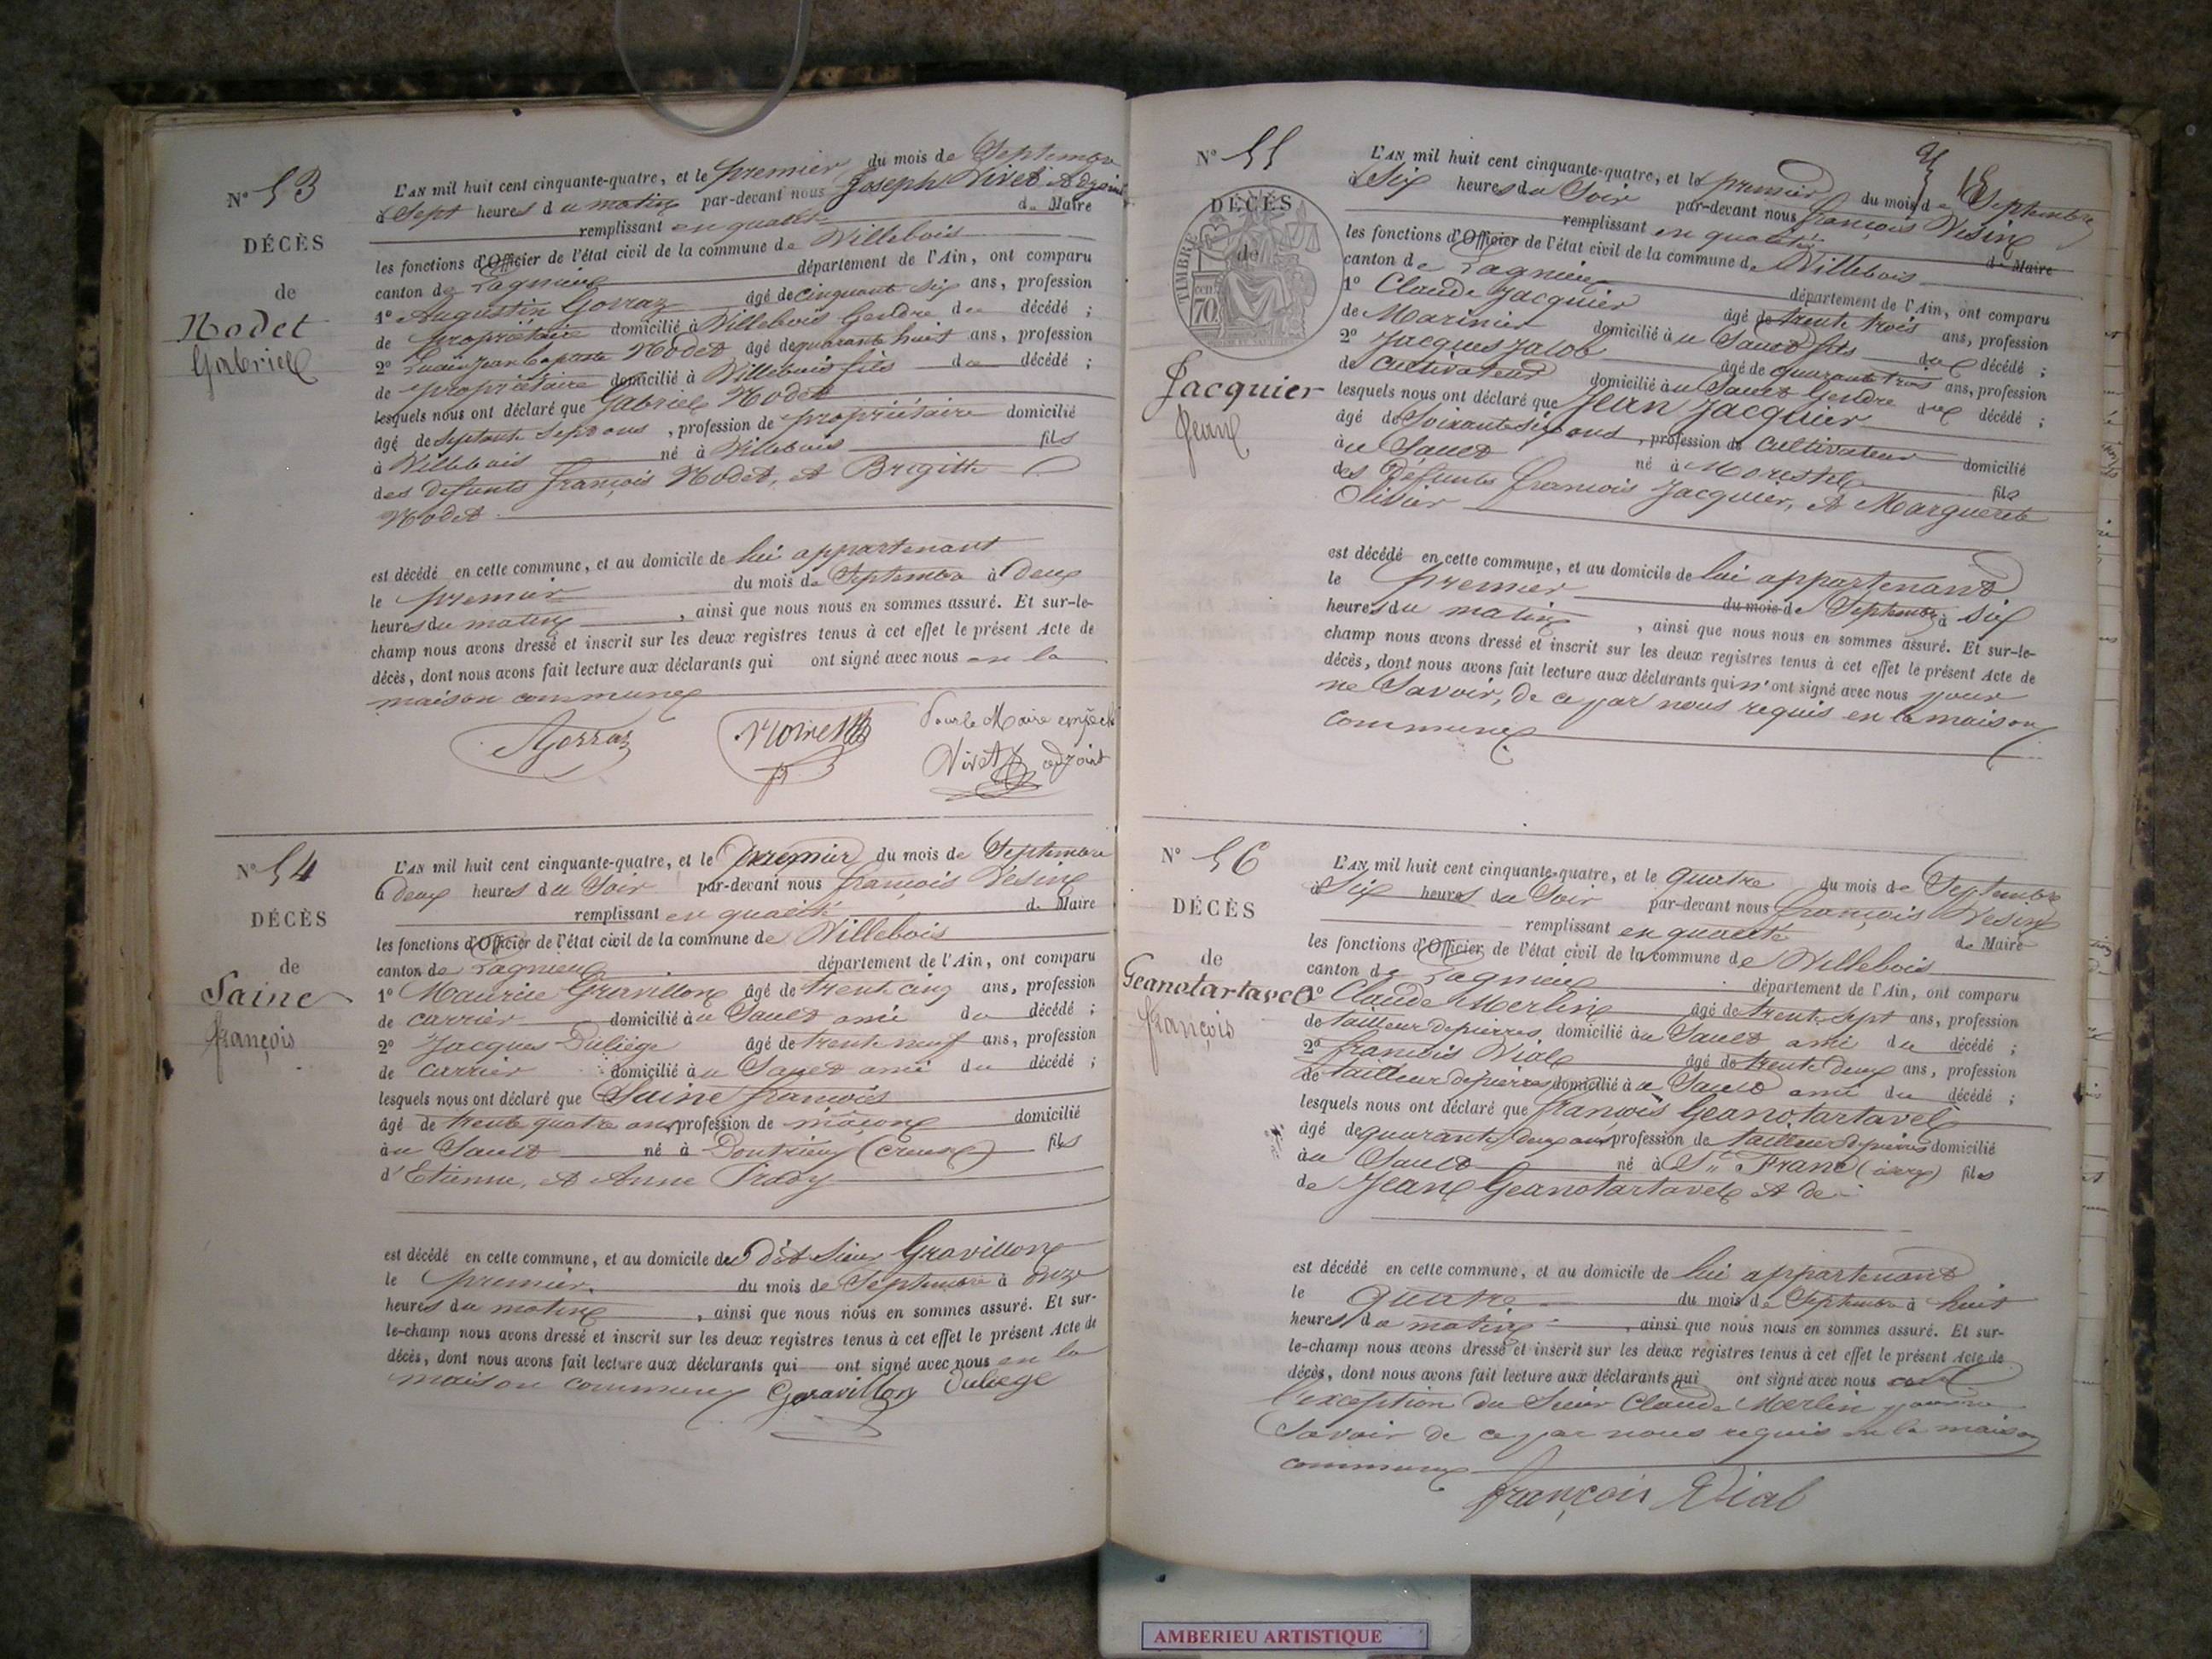 N° 53
DÉCÈS
de
Nodet
Gabriel
L'AN mil huit cent cinquante-quatre, et le premier du mois de Septembre
à Sept heures du matin par-devant nous Joseph Vivet Adjoint
remplissant en qualité de Maire
les fonctions d'Officier de l'état civil de la commune de Villebois
canton de Lagnieu département de l'Ain, ont comparu
1° Augustin Gorraz âgé de cinquant six ans, profession
de propriétaire domicilié à Villebois Gendre du décédé ;
2° Jean baptiste Nodet âgé de quarante huit ans, profession
de propriétaire domicilié à Villebois fils du décédé ;
lesquels nous ont déclaré que Gabriel Nodet
âgé de septante Sept ans, profession de propriétaire domicilié
à Villebois né à Villebois fils
des defunts françois Nodet, et Brigitte
Nodet
est décédé en cette commune, et au domicile de lui appartenant
le premier du mois de Septembre à deux
heures du matin, ainsi que nous nous en sommes assuré. Et sur-le-
champ nous avons dressé et inscrit sur les deux registres tenus à cet effet le présent Acte de
décès, dont nous avons fait lecture aux déclarants qui ont signé avec nous en la
maison commune
Gorraz
Pour le Maire empêché
Vivet adjoint
N° 54
DÉCÈS
de
Saine
françois
L'AN mil huit cent cinquante-quatre, et le premier du mois de Septembre
à deux heures du Soir par-devant nous françois Vesin
remplissant en qualité de Maire
les fonctions d'Officier de l'état civil de la commune de Villebois
canton de Lagnieu département de l'Ain, ont comparu
1° Maurice Gravillon âgé de trent cinq ans, profession
de carrier domicilié au Sault ami du décédé ;
2° Jacques Duliège âgé de trent neuf ans, profession
de carrier domicilié au Sault ami du décédé ;
lesquels nous ont déclaré que Saine françois
âgé de trente quatre ans profession de maçon domicilié
au Sault né à Dontrieu (creuse) fils
d'Etienne, et Anne
est décédé en cette commune, et au domicile du dit Sieur Gravillon
le premier du mois de Septembre à onze
heures du matin, ainsi que nous nous en sommes assuré. Et sur-
le-champ nous avons dressé et inscrit sur les deux registres tenus à cet effet le présent Acte de
décès, dont nous avons fait lecture aux déclarants qui ont signé avec nous en la
maison commune Gravillon Duliège
N° 55
DÉCÈS
de
TIMBRE
70
Jacquier
Jean
L'AN mil huit cent cinquante-quatre, et le premier du mois de Septembre
à Six heures du Soir par-devant nous françois Vesin
remplissant en qualité de Maire
les fonctions d'Officier de l'état civil de la commune de Villebois
canton de Lagnieu département de l'Ain, ont comparu
1° Claude Jacquier âgé de trente trois ans, profession
de Marinier domicilié au Sault fils du décédé ;
2° Jacques Jacob âgé de quarante trois ans, profession
de cultivateur domicilié au Sault Gendre du décédé ;
lesquels nous ont déclaré que Jean Jacquier
âgé de Soixante six ans, profession de cultivateur domicilié
au Sault né à Morestel fils
des Défunts françois Jacquier, et Marguerite
Olivier
est décédé en cette commune, et au domicile de lui appartenant
le premier du mois de Septembre à Six
heures du matin, ainsi que nous nous en sommes assuré. Et sur-le-
champ nous avons dressé et inscrit sur les deux registres tenus à cet effet le présent Acte de
décès, dont nous avons fait lecture aux déclarants qui n'ont signé avec nous pour
ne Savoir, de ce par nous requis en la maison
commune
N° 56
DÉCÈS
de
Geanotartavel
françois
L'AN mil huit cent cinquante-quatre, et le quatre du mois de Septembre
à Six heures du Soir par-devant nous françois Vesin
remplissant en qualité de Maire
les fonctions d'Officier de l'état civil de la commune de Villebois
canton de Lagnieu département de l'Ain, ont comparu
1° Claude Merlin âgé de trent Sept ans, profession
de tailleur de pierres domicilié au Sault ami du décédé ;
2° françois Vial âgé de trente deux ans, profession
de tailleur de pierres domicilié au Sault ami du décédé ;
lesquels nous ont déclaré que françois Geanotartavel
âgé de quarante deux ans profession de tailleur de pierres domicilié
au Sault né à St. Franc fils
de Jean Geanotartavel et de
est décédé en cette commune, et au domicile de lui appartenant
le quatre du mois de Septembre à huit
heures du matin, ainsi que nous nous en sommes assuré. Et sur-
le-champ nous avons dressé et inscrit sur les deux registres tenus à cet effet le présent Acte de
décès, dont nous avons fait lecture aux déclarants qui ont signé avec nous
l'exception du Sieur Claude Merlin pour ne
Savoir de ce par nous requis en la maison
commune
françois Vial
AMBERIEU ARTISTIQUE